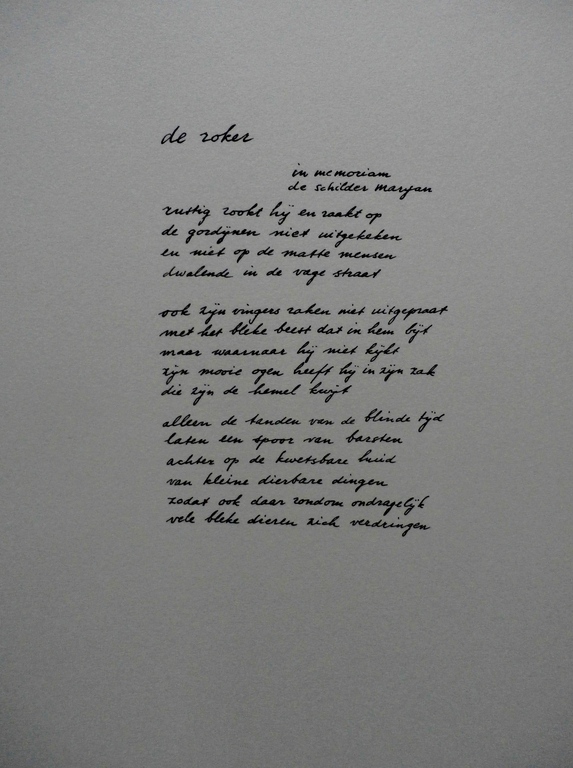 de roker
in memoriam
de schilder maryan
rustig rookt hij en raakt op
de gordijnen niet uitgekeken
en niet op de matte mensen
dwalende in de vage straat
ook zijn vingers raken niet uitgepraat
met het bleke beest dat in hem bijt
maar waarnaar hij niet kijkt
zijn mooie ogen heeft hij in zijn zak
die zijn de hemel kwijt
alleen de tanden van de blinde tijd
laten een spoor van barsten
achter op de kwetsbare huid
van kleine dierbare dingen
zodat ook daar rondom ondragelijk
vele bleke dieren zich verdringen